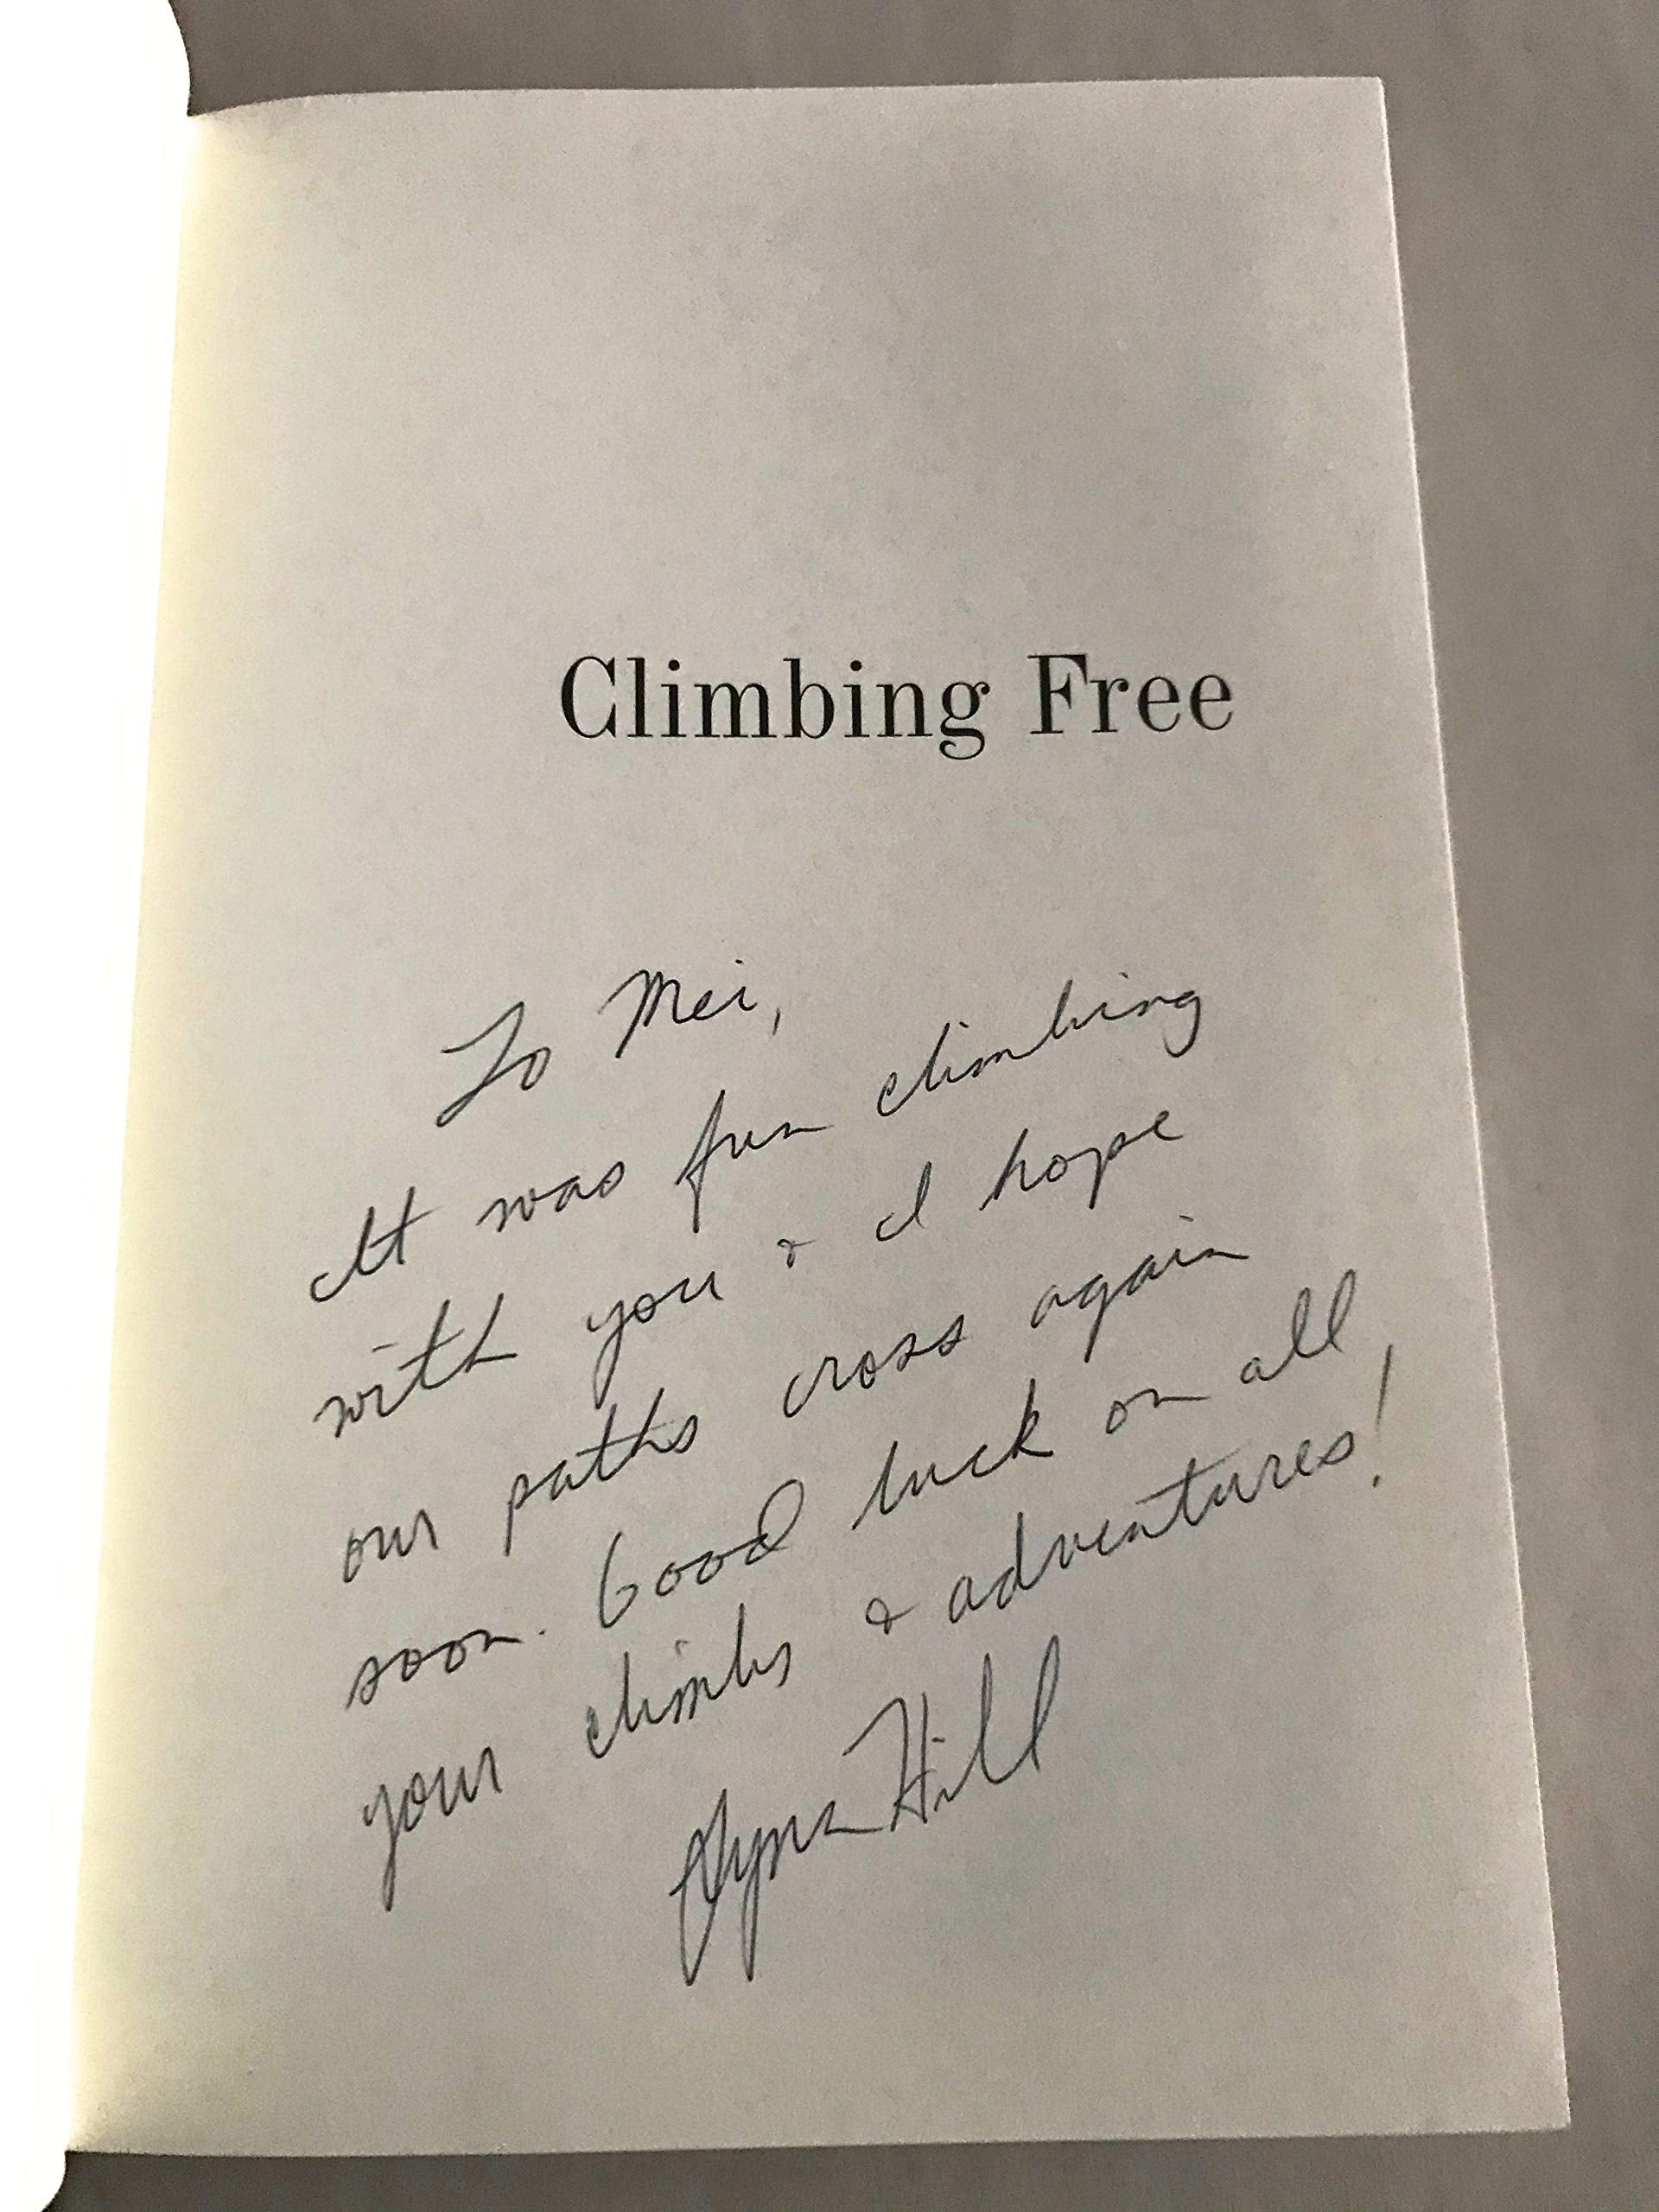 Climbing Free
To Mei,
It was fun climbing
with you & I hope
our paths cross again
soon. Good luck on all
your climbs & adventures!
Lynn Hill